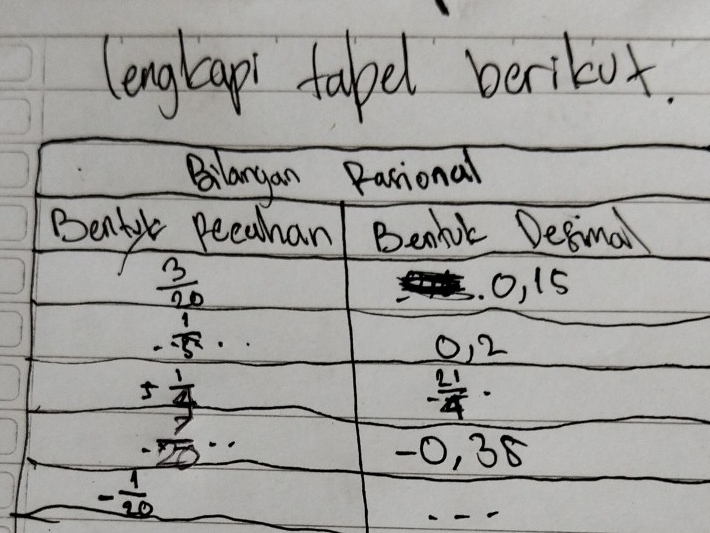 lengkapi tabel berikut.
Bilangan Rasional
Bentuk Pecahan Bentuk Desimal
3/20 0,15
- 1/5 . . 0,2
5 1/4 - 21/4 .
- 7/20 . . -0,35
- 1/20 - - -